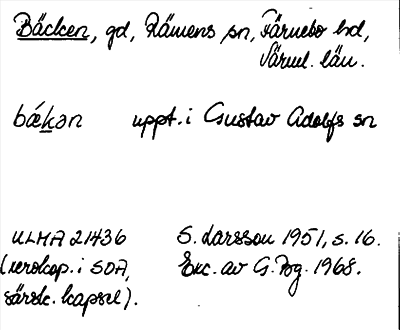 Bäcken, gd, Rämens sn, Färnebo hd,
Värml. län.
bǽkən uppt. i Gustav Adolfs sn
ULMA 21436 S. Larsson 1951, s. 16.
(xerokop. i SOA, Exc. av G. Bg. 1968.
särsk. kapsel).